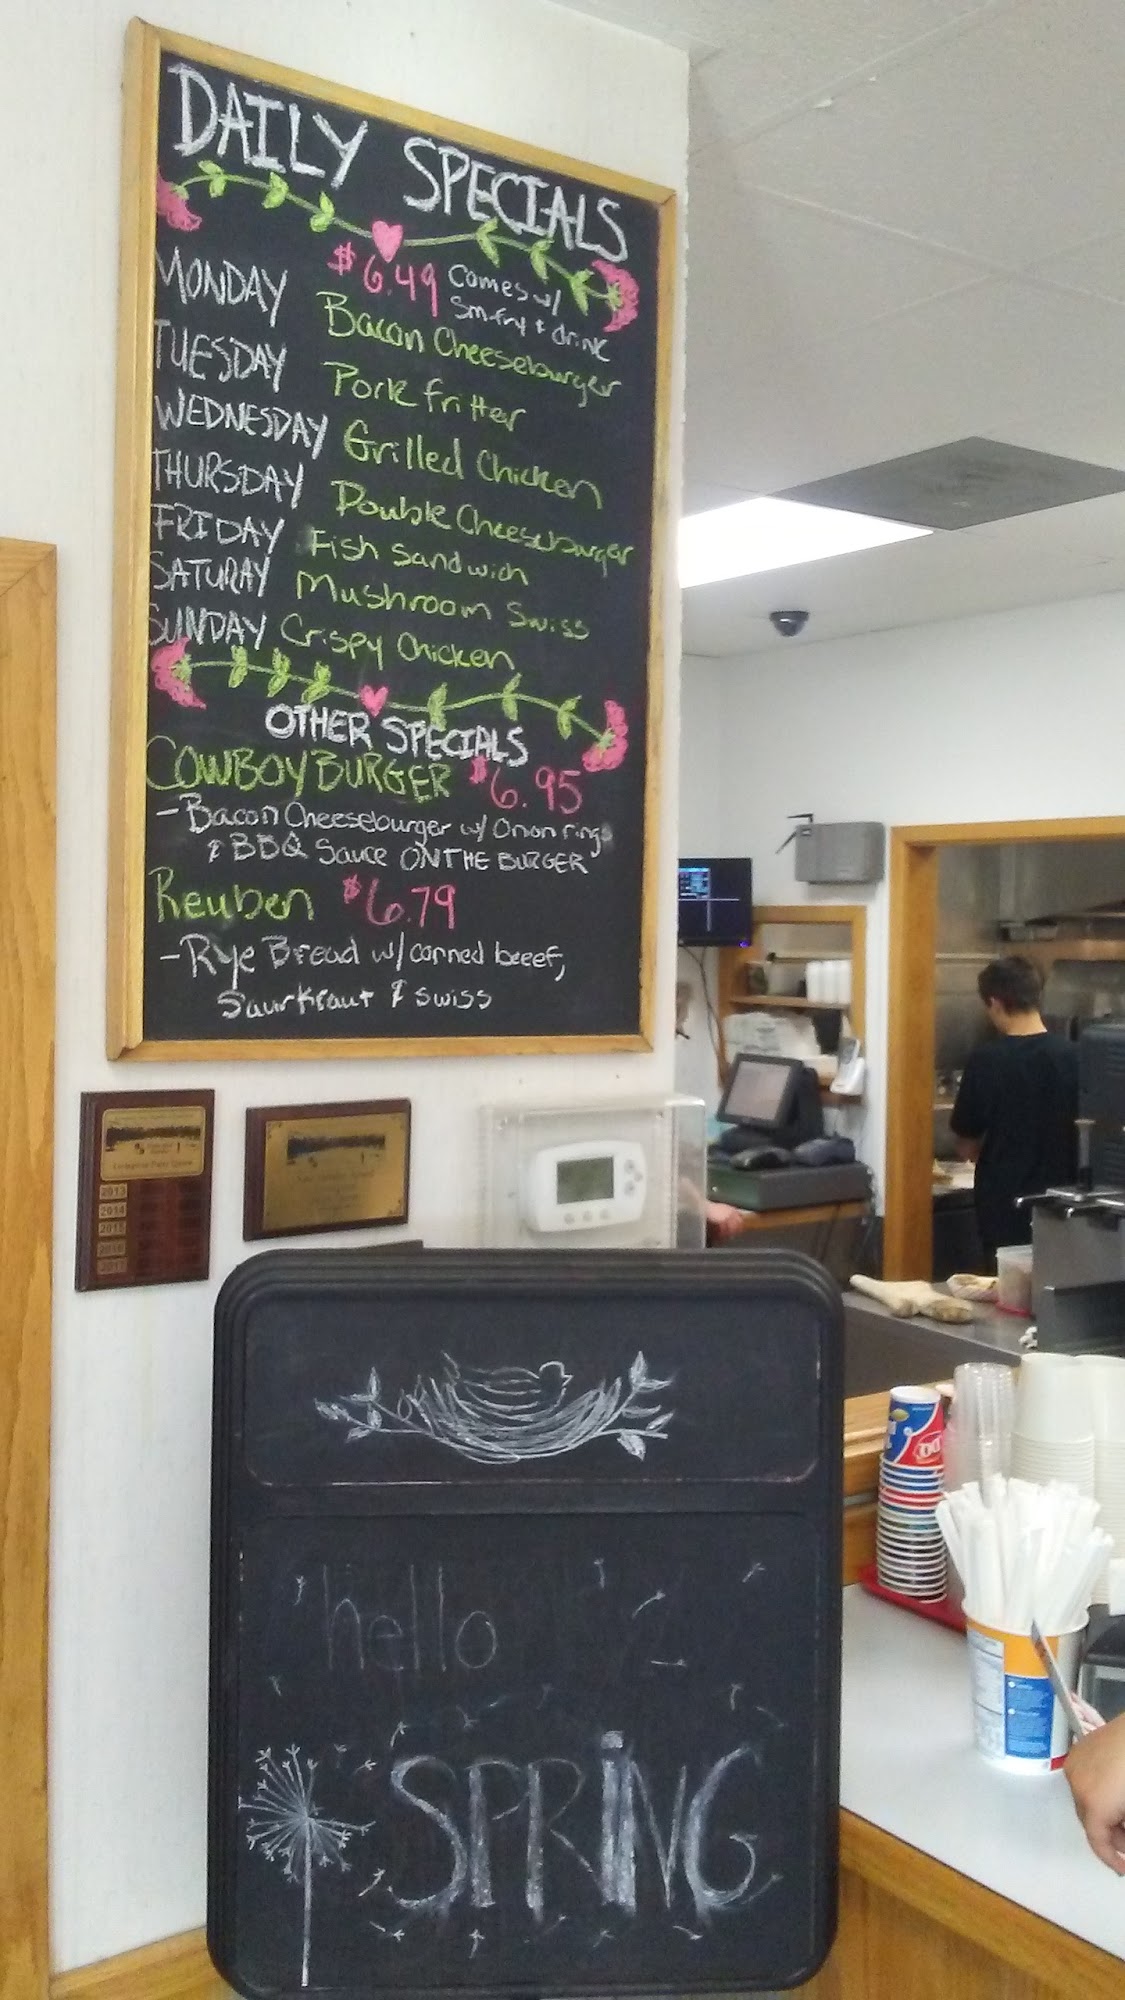 DAILY SPECIALS
$6.49 comes w/
sm. fry & drink
MONDAY Bacon Cheeseburger
TUESDAY Pork fritter
WEDNESDAY Grilled Chicken
THURSDAY Double Cheeseburger
FRIDAY Fish Sandwich
SATURAY Mushroom Swiss
SUNDAY Crispy Chicken
OTHER SPECIALS
COWBOY BURGER $6.95
-Bacon Cheeseburger w/ Onion rings
& BBQ Sauce ON THE BURGER
Reuben $6.79
-Rye Bread w/ corned beeef,
Saurkraut & swiss
2013
2014
2015
2016
2017
hello
SPRiNG
DQ